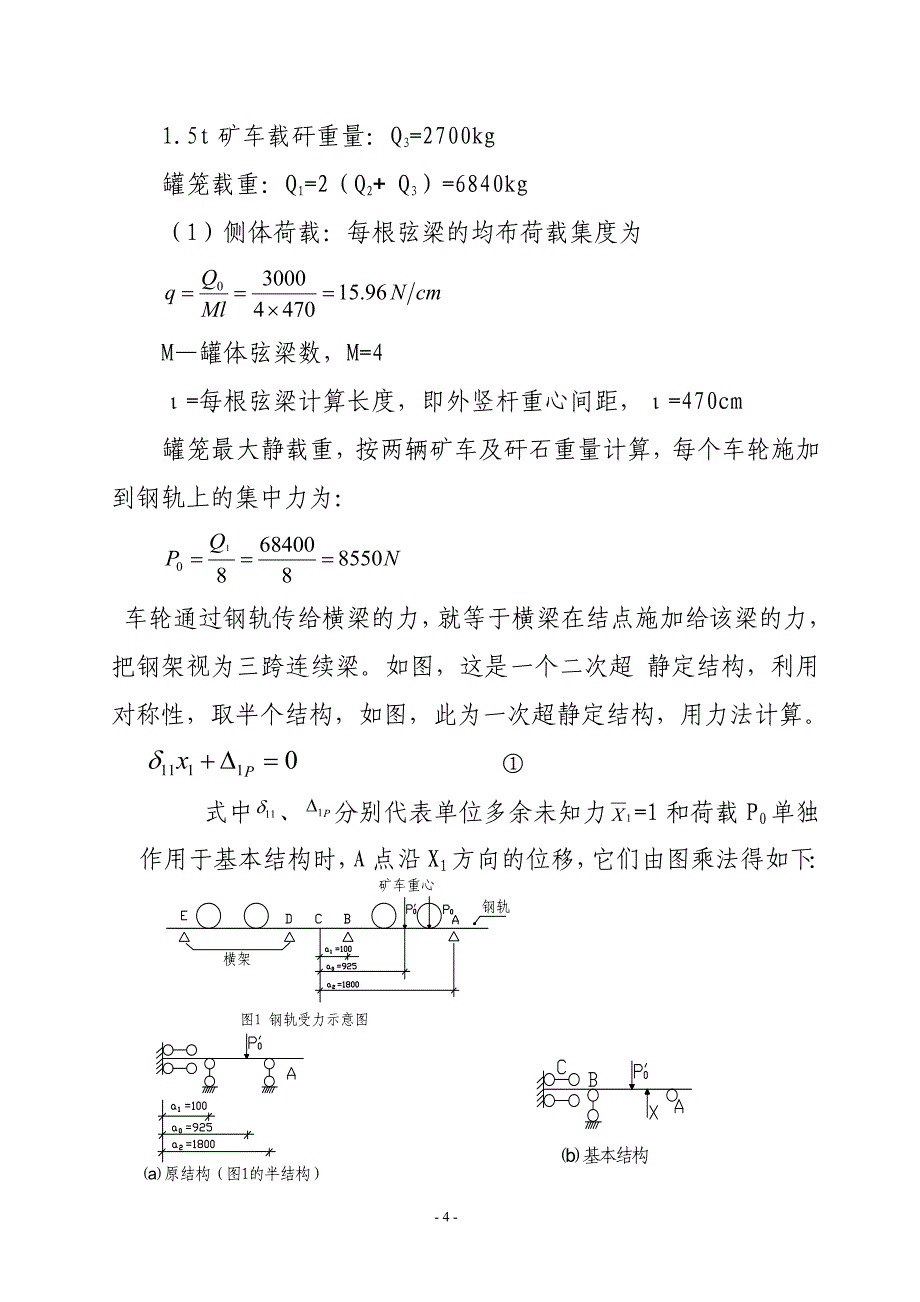 1.5t 矿车载矸重量：Q3=2700kg
罐笼载重：Q1=2（Q2+ Q3）=6840kg
（1）侧体荷载：每根弦梁的均布荷载集度为
q = Q0/Ml = 3000/4×470 = 15.96 N/cm
M—罐体弦梁数，M=4
ι=每根弦梁计算长度，即外竖杆重心间距，ι=470cm
罐笼最大静载重，按两辆矿车及矸石重量计算，每个车轮施加
到钢轨上的集中力为：
P0 = Q1/8 = 68400/8 = 8550N
车轮通过钢轨传给横梁的力，就等于横梁在结点施加给该梁的力，
把钢架视为三跨连续梁。如图，这是一个二次超 静定结构，利用
对称性，取半个结构，如图，此为一次超静定结构，用力法计算。
δ11x1 + Δ1P = 0 ①
式中δ11、Δ1P分别代表单位多余未知力X̄1=1 和荷载 P0 单独
作用于基本结构时，A 点沿 X1 方向的位移，它们由图乘法得如下：
矿车重心
E D C B P0′ P0 A 钢轨
横架
a1=100
a0=925
a2=1800
图1 钢轨受力示意图
P0′
A
a1=100
a0=925
a2=1800
(a)原结构（图1的半结构）
C B P0′
X A
(b)基本结构
- 4 -